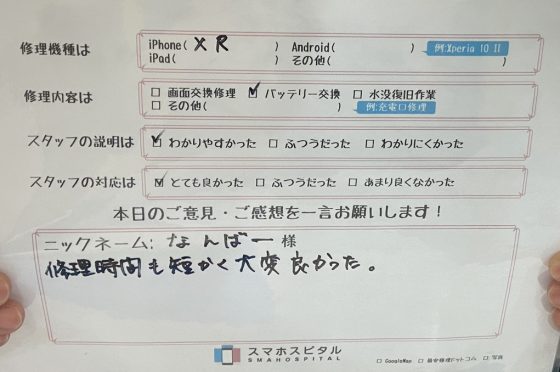 修理機種は
iPhone( XR ) Android( ) 例:Xperia 10 II
iPad( ) その他( )
修理内容は
□ 画面交換修理 ☑ バッテリー交換 □ 水没復旧作業
□ その他( ) 例:充電口修理
スタッフの説明は ☑ わかりやすかった □ ふつうだった □ わかりにくかった
スタッフの対応は ☑ とても良かった □ ふつうだった □ あまり良くなかった
本日のご意見・ご感想を一言お願いします!
ニックネーム: なんばー 様
修理時間も短かく大変良かった。
スマホスピタル
SMAHOSPITAL
□ GoogleMap □ 最安修理ドットコム □ 写真